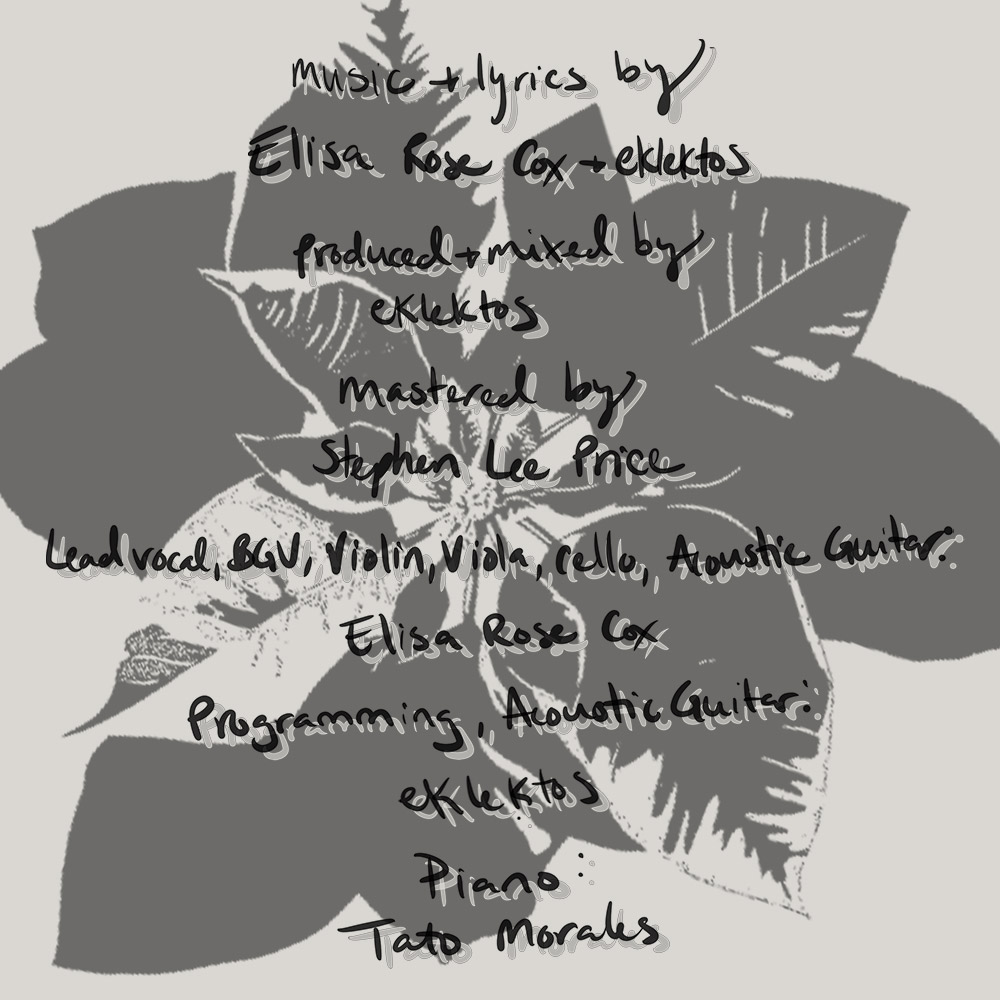 music + lyrics by
Elisa Rose Cox + eklektos
produced + mixed by
eklektos
mastered by
Stephen Lee Price
Lead vocal, BGV, Violin, Viola, cello, Acoustic Guitar:
Elisa Rose Cox
Programming, Acoustic Guitar:
eklektos
Piano:
Tato Morales